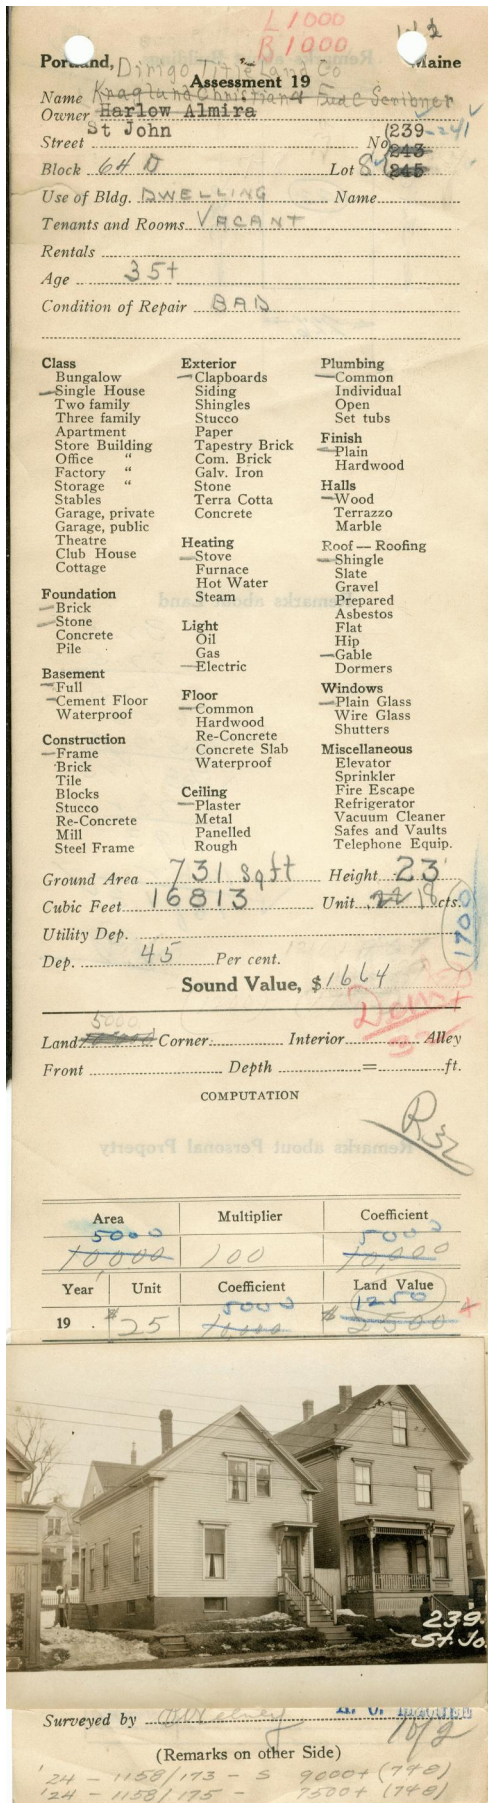 L 1000
B 1000
Portland, Maine
Dirigo Title Land Co
Assessment 19
Name Kraglund Christian & Fred C Scribner
Owner Harlow Almira
St John (239-241
Street No 243
Block 64 D Lot 8 245
Use of Bldg. DWELLING Name
Tenants and Rooms VACANT
Rentals
Age 35+
Condition of Repair BAD
Class
Bungalow
Single House
Two family
Three family
Apartment
Store Building
Office "
Factory "
Storage "
Stables
Garage, private
Garage, public
Theatre
Club House
Cottage
Foundation
Brick
Stone
Concrete
Pile
Basement
Full
Cement Floor
Waterproof
Construction
Frame
Brick
Tile
Blocks
Stucco
Re-Concrete
Mill
Steel Frame
Exterior
Clapboards
Siding
Shingles
Stucco
Paper
Tapestry Brick
Com. Brick
Galv. Iron
Stone
Terra Cotta
Concrete
Heating
Stove
Furnace
Hot Water
Steam
Light
Oil
Gas
Electric
Floor
Common
Hardwood
Re-Concrete
Concrete Slab
Waterproof
Ceiling
Plaster
Metal
Panelled
Rough
Plumbing
Common
Individual
Open
Set tubs
Finish
Plain
Hardwood
Halls
Wood
Terrazzo
Marble
Roof — Roofing
Shingle
Slate
Gravel
Prepared
Asbestos
Flat
Hip
Gable
Dormers
Windows
Plain Glass
Wire Glass
Shutters
Miscellaneous
Elevator
Sprinkler
Fire Escape
Refrigerator
Vacuum Cleaner
Safes and Vaults
Telephone Equip.
Ground Area 731 Sq ft Height 23'
Cubic Feet 16813 Unit 22 18 cts.
1700
Utility Dep.
Dep. 45 Per cent.
Sound Value, $1664
5000
Land 10000 Corner Interior Alley
Front Depth = ft.
COMPUTATION
R32
Area Multiplier Coefficient
5000 5000
10000 100 10,000
Year Unit Coefficient Land Value
5000 1250
19 $25 10,000 $2500
239
St. Jo
Surveyed by
(Remarks on other Side)
'24 - 1158/173 - S 9000+ (74８)
'24 - 1158/175 - 7500+ (748)